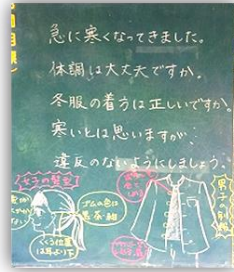 急に寒くなってきました。
体調は大丈夫ですか。
冬服の着方は正しいですか。
寒いとは思いますが、
違反のないようにしましょう。
女子の髪型
ゴムの色は
黒・茶・紺
くくる位置
は耳より下
男子の制服